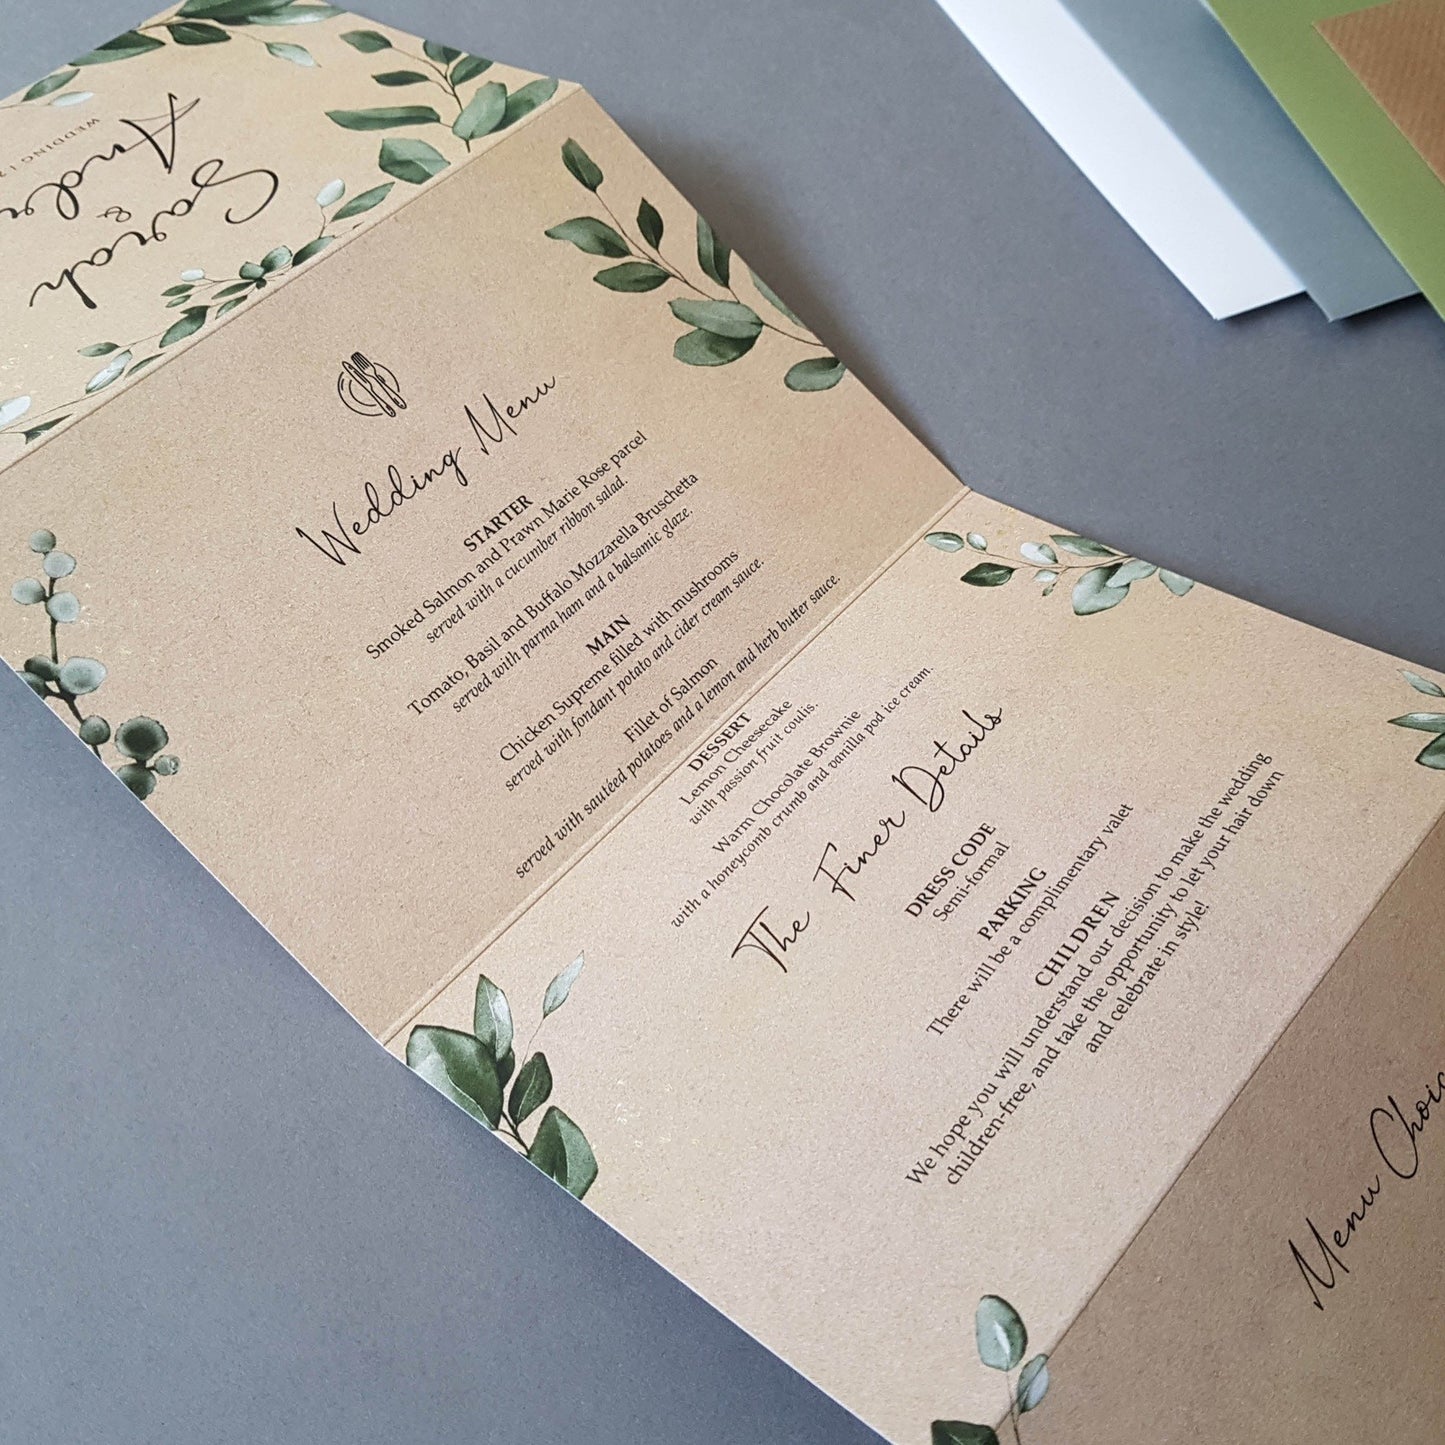 Sarah
&
WEDDING
Wedding Menu
STARTER
Smoked Salmon and Prawn Marie Rose parcel
served with a cucumber ribbon salad.
Tomato, Basil and Buffalo Mozzarella Bruschetta
served with parma ham and a balsamic glaze.
MAIN
Chicken Supreme filled with mushrooms
served with fondant potato and cider cream sauce.
Fillet of Salmon
served with sautéed potatoes and a lemon and herb butter sauce.
DESSERT
Lemon Cheesecake
with passion fruit coulis.
Warm Chocolate Brownie
with a honeycomb crumb and vanilla pod ice cream.
The Finer Details
DRESS CODE
Semi-formal
PARKING
There will be a complimentary valet
CHILDREN
We hope you will understand our decision to make the wedding
children-free, and take the opportunity to let your hair down
and celebrate in style!
Menu